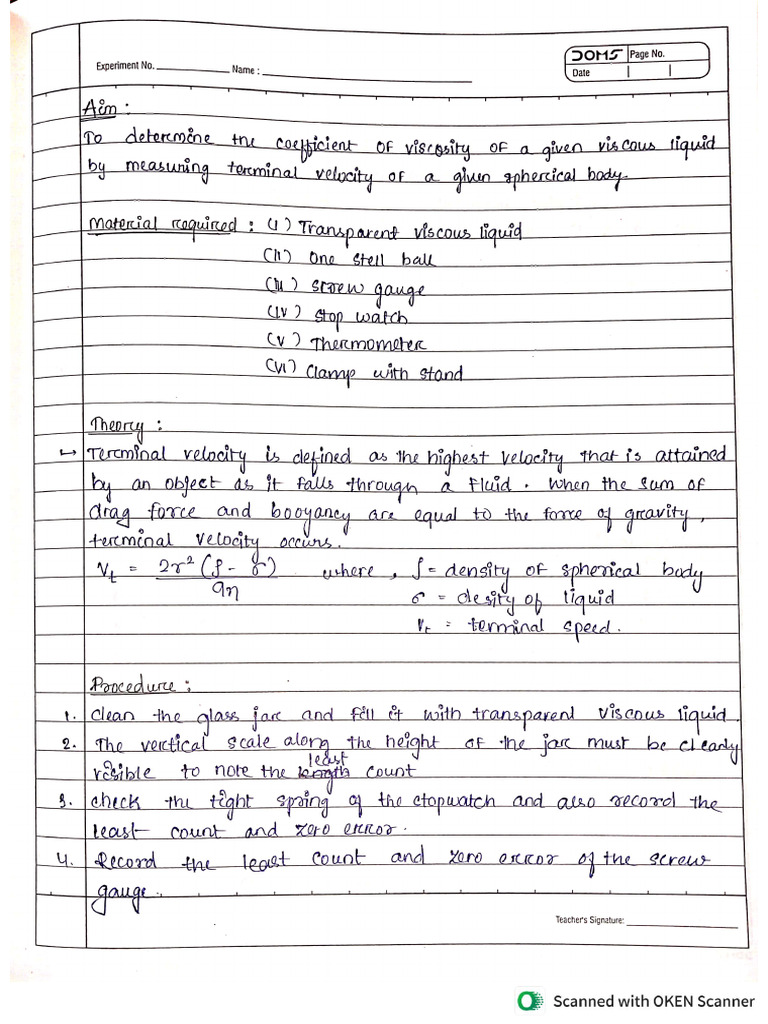 Experiment No. Name :
DOMS Page No.
Date
Aim :
To determine the coefficient of viscosity of a given viscous liquid
by measuring terminal velocity of a given spherical body.
Material required : (I) Transparent viscous liquid
(II) One stell ball
(III) screw gauge
(IV) Stop watch
(V) Thermometer
(VI) Clamp with stand
Theory :
↳ Terminal velocity is defined as the highest velocity that is attained
by an object as it falls through a fluid. When the sum of
drag force and booyancy are equal to the force of gravity,
terminal velocity occurs.
Vt = 2r² (ρ - σ) / 9η where, ρ = density of spherical body
σ = desity of liquid
Vt = terminal speed.
Procedure :
1. Clean the glass jar and fill it with transparent viscous liquid.
2. The vertical scale along the height of the jar must be clearly
visible to note the least count
3. check the tight spring of the stopwatch and also record the
least count and zero error.
4. Record the least count and zero error of the screw
gauge.
Teacher's Signature:
Scanned with OKEN Scanner